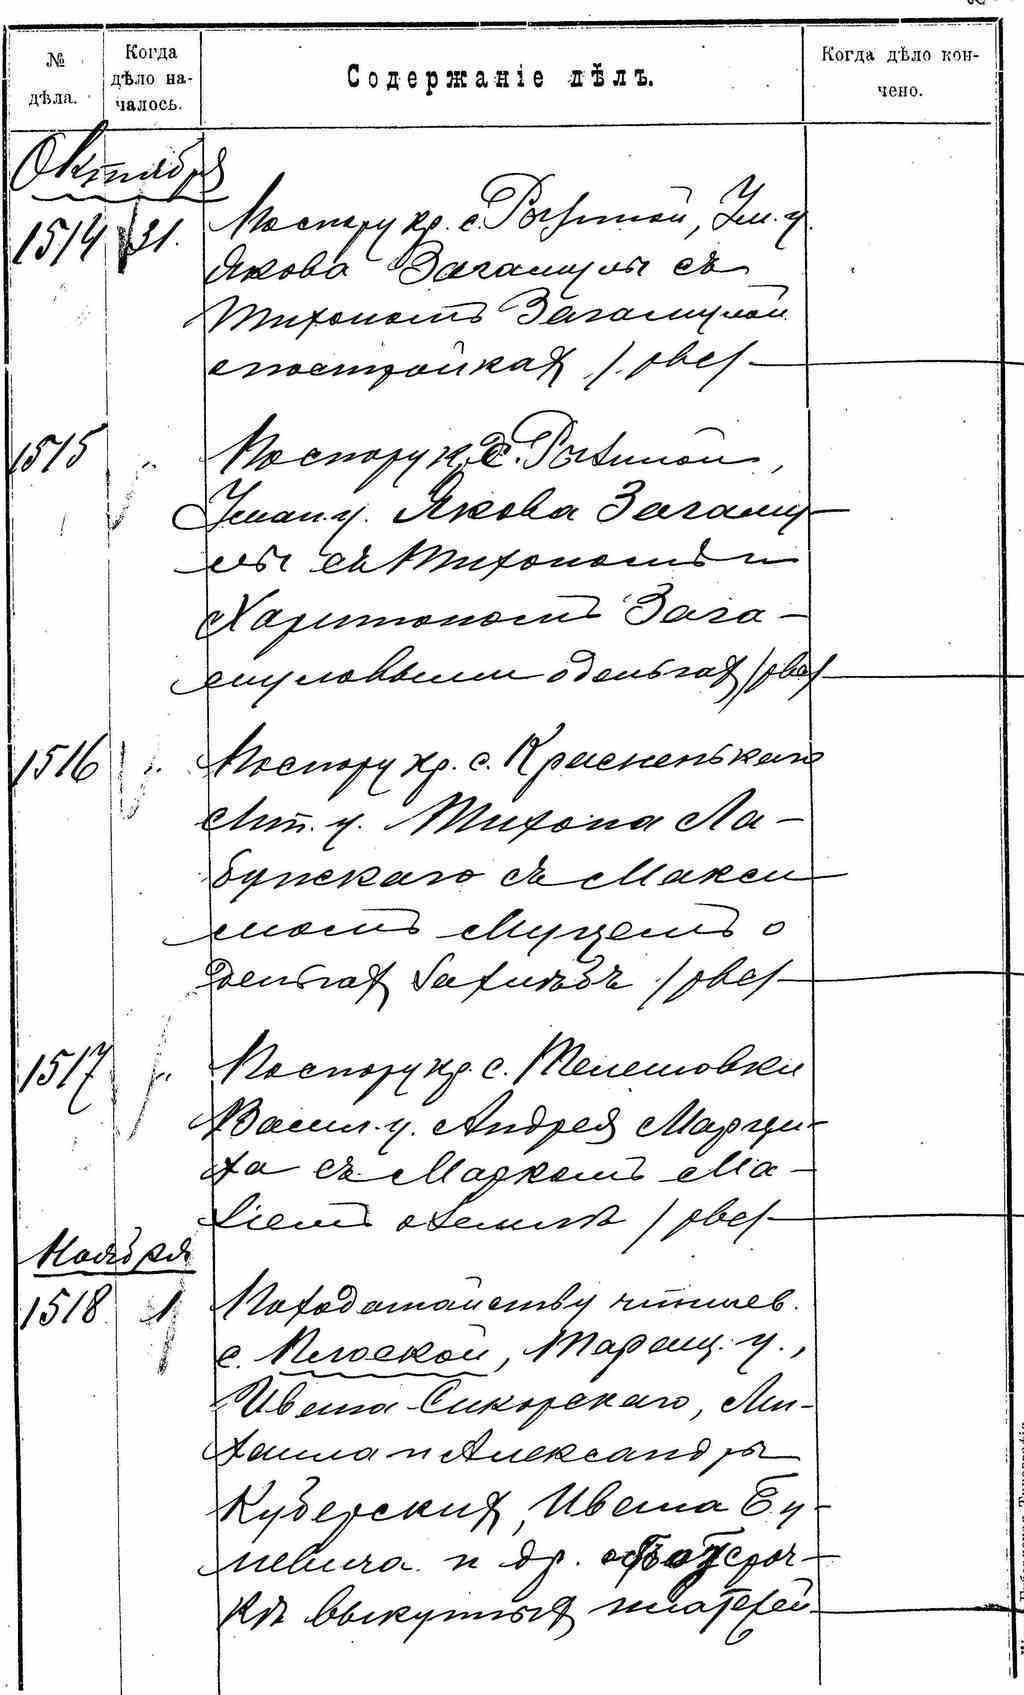 № дѣла.
Когда дѣло на-
чалось.
Содержаніе дѣлъ.
Когда дѣло кон-
чено.
Октября
1514 31. По спору кр. с. Рыжной, Ум. у.
Якова Загамулы съ
Тихономъ Загамулой
о постройкахъ /рев/
1515 " По спору кр. с. Рыжной,
Уман. у. Якова Загаму-
лы съ Тихономъ и
Харитономъ Зага-
муловыми о деньгах /рев/
1516 " По спору кр. с. Красненькаго
Лип. у. Тихона Ла-
бунскаго съ Макси
момъ
деньгах /рев/
1517 " По спору кр. с. Телешовки
Васил. у. Андрея Марци-
ха съ Маркомъ Ма-
о земле /рев/
Ноября
1518 1 По ходатайству чиншев.
с. Плоской, Таращ. у.,
Ивана Сикорскаго, Ми-
хаила и Александры
Куберских, Ивана Бу-
невича и др. объ отсроч-
кѣ выкупных платежей